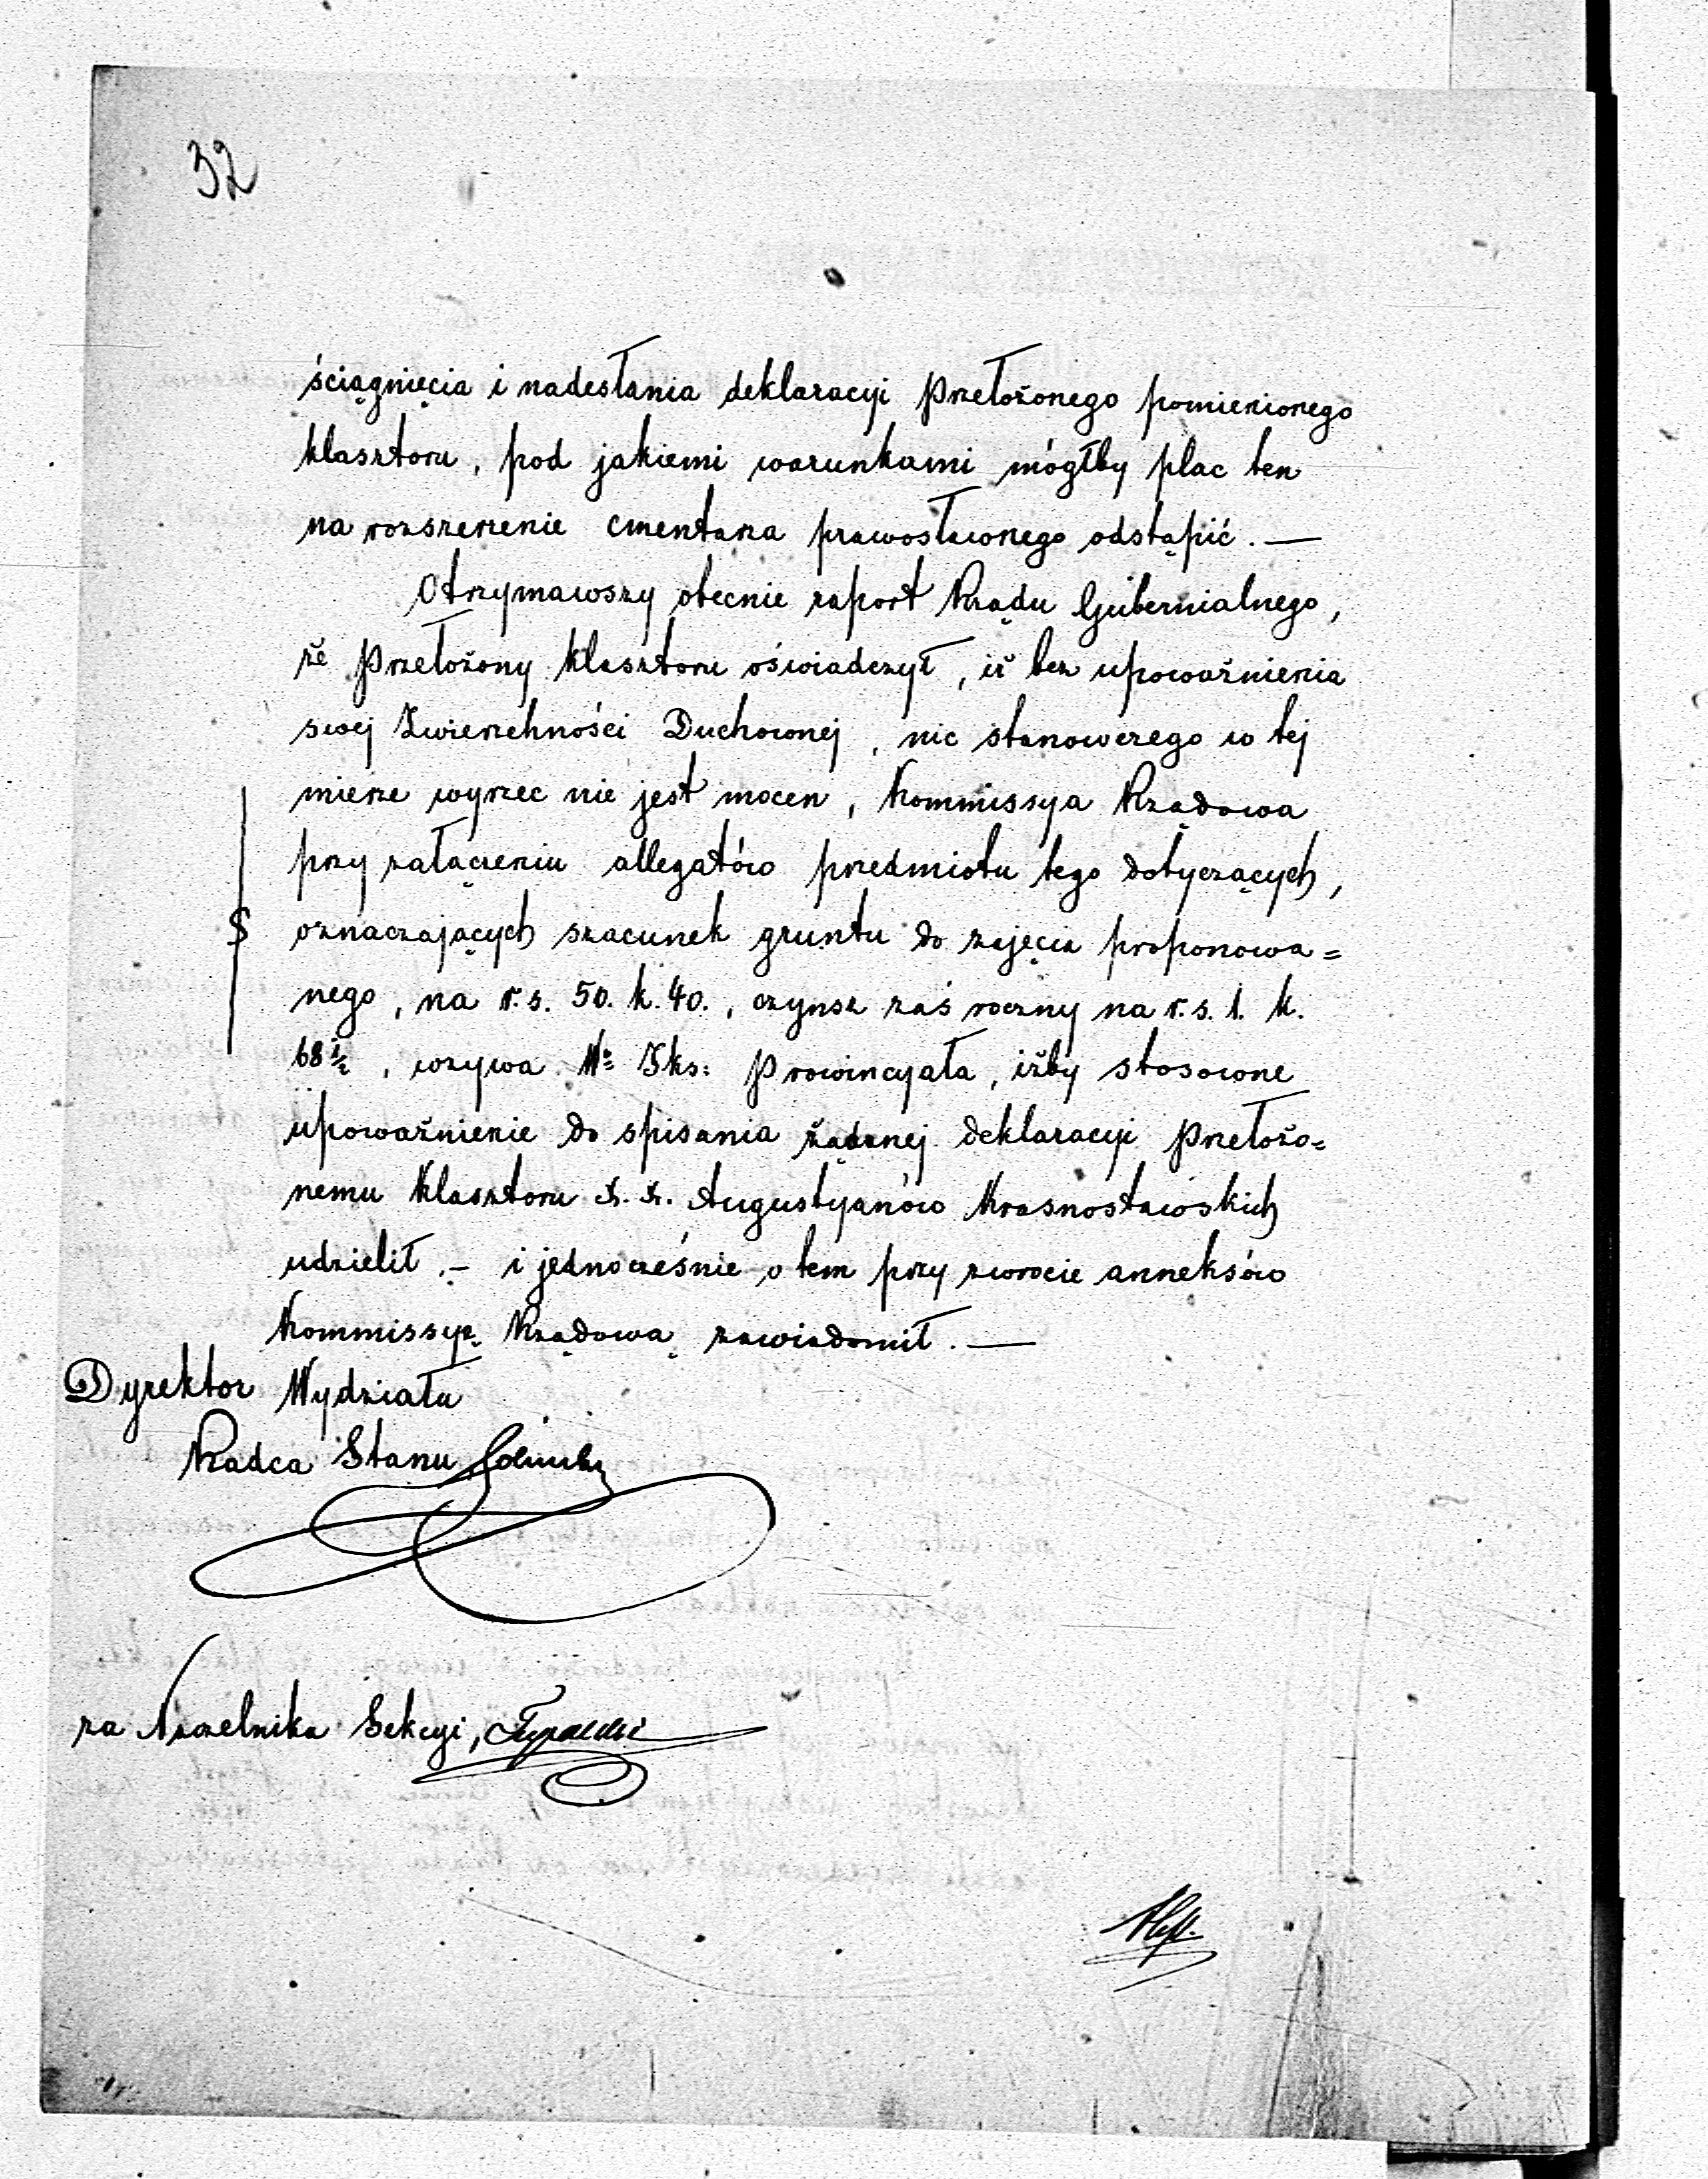 32
ściągnięcia i nadesłania deklaracyi Przełożonego pomienionego
klasztoru, pod jakiemi warunkami mógłby plac ten
na rozszerzenie cmentarza prawosławnego odstąpić. —
Otrzymawszy obecnie raport Rządu Gubernialnego,
że Przełożony Klasztoru oświadczył, iż bez upoważnienia
swej Zwierzchności Duchownej, nic stanowczego w tej
mierze wyrzec nie jest mocen, Kommissya Rządowa
przy załączeniu allegatów przedmiotu tego dotyczących,
oznaczających szacunek gruntu do zajęcia proponowa=
nego, na r.s. 50. k. 40., czynsz zaś roczny na r.s. 1. k.
68½, wzywa W: Xks: Prowincyała, iżby stosowne
upoważnienie do spisania żądanej deklaracyi Przełożo=
nemu Klasztoru X.X. Augustyanów Krasnostawskich
udzielił. – i jednocześnie o tem przy zwrocie anneksów
Kommissyę Rządową zawiadomił. —
Dyrektor Wydziału
Radca Stanu
za Naczelnika Sekcyi,